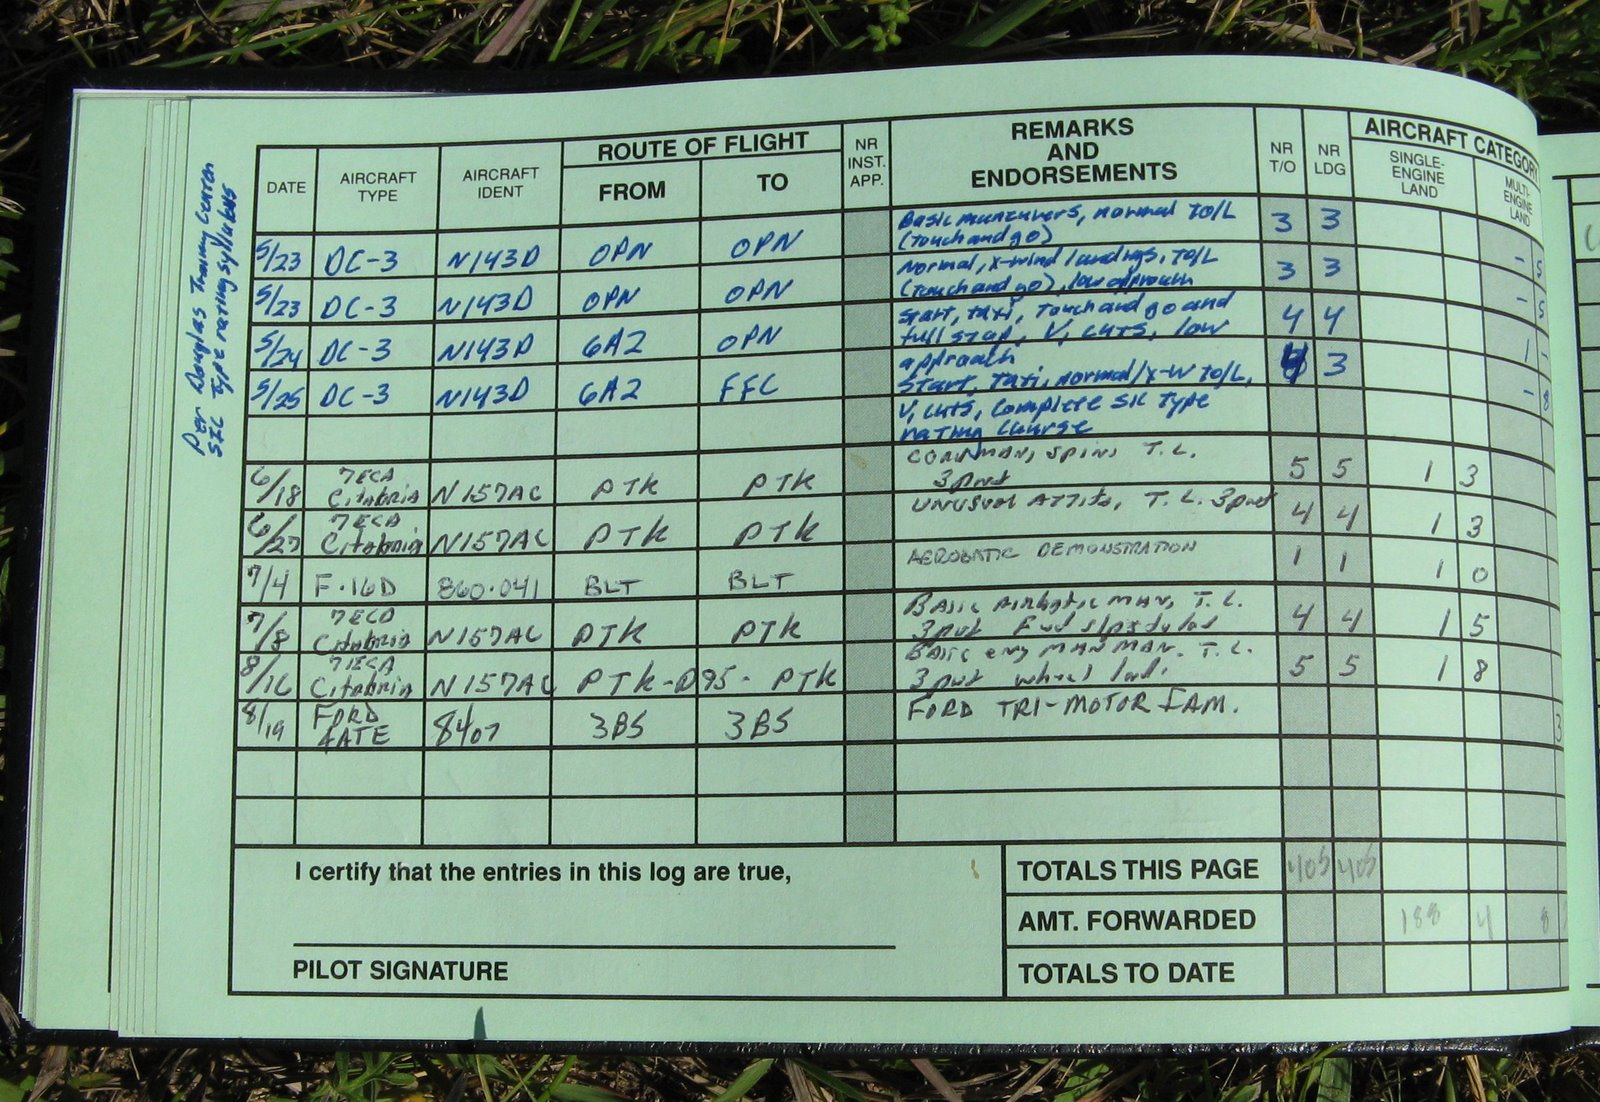 Per Douglas Training Center
SIC Type rating syllabus
DATE AIRCRAFT TYPE AIRCRAFT IDENT ROUTE OF FLIGHT FROM TO NR INST. APP. REMARKS AND ENDORSEMENTS NR T/O NR LDG AIRCRAFT CATEGORY SINGLE-ENGINE LAND MULTI-ENGINE LAND
Basic maneuvers, normal TO/L
5/23 DC-3 N143D OPN OPN (Touch and go) 3 3 - 5
Normal, x-wind landings, TO/L
5/23 DC-3 N143D OPN OPN (Touch and go), low approach 3 3 - 5
Start, taxi, Touch and go and
5/24 DC-3 N143D 6A2 OPN full stop, V, cuts, low 4 4 1 -
approach
5/25 DC-3 N143D 6A2 FFC Start, Taxi, normal/x-w TO/L, 4 3 - 8
V, cuts, Complete SIC Type
rating course
6/18 7ECA Citabria N157AC PTK PTK MAN, SPINS T. L. 5 5 1 3
6/27 7ECA Citabria N157AC PTK PTK UNUSUAL ATTITS, T. L. 4 4 1 3
7/4 F-16D 860-041 BLT BLT AEROBATIC DEMONSTRATION 1 1 1 0
7/8 7ECA Citabria N157AC PTK PTK BASIC MAN, T. L. 4 4 1 5
8/16 7ECA Citabria N157AC PTK-D95- PTK BASIC MAN. T. L. wheel 5 5 1 8
8/19 FORD 4ATE 8407 3BS 3BS FORD TRI-MOTOR FAM. 3
I certify that the entries in this log are true,
PILOT SIGNATURE
TOTALS THIS PAGE 405 405
AMT. FORWARDED 188 4 8
TOTALS TO DATE